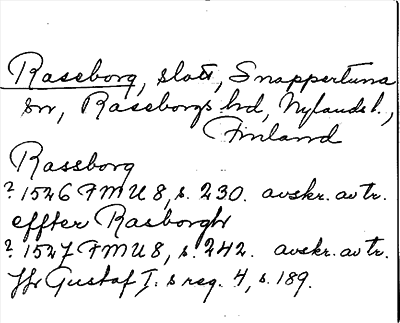 Raseborg, slott, Snappertuna
sn, Raseborgs hd, Nylands l.,
Finland
Rassborg
? 1526 FMU 8, s. 230. avskr. av tr.
effter Rasborghr
? 1527 FMU 8, s. 242. avskr. av tr.
Jfr Gustaf I. s reg. 4, s. 189.